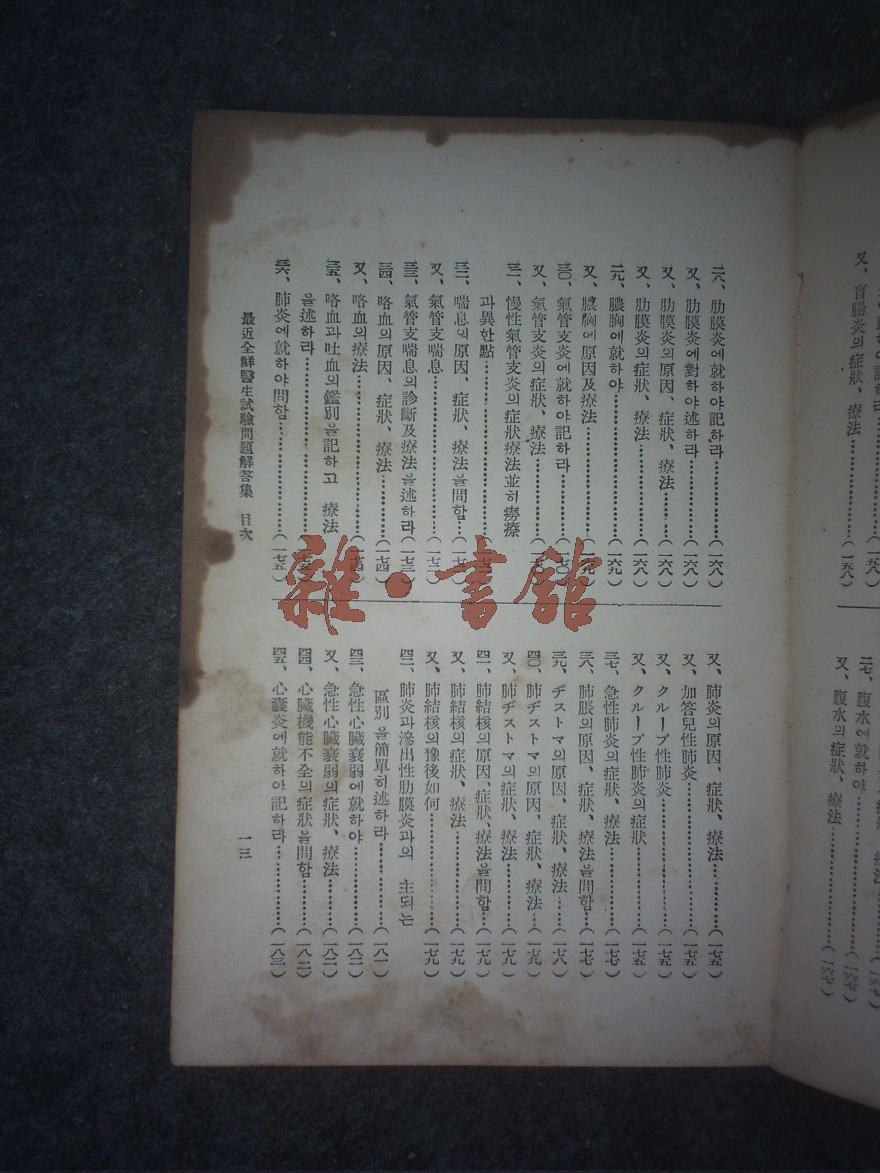 二八、肋膜炎에就하야記하라…………(一六八)
又、肋膜炎에對하야述하라…………(一六八)
又、肋膜炎의原因、症狀、療法…………(一六八)
又、肋膜炎의症狀、療法…………(一六八)
二九、膿胸에就하야…………(一六九)
又、膿胸에原因及療法…………(一六九)
三〇、氣管支炎에就하야記하라…………(一七〇)
又、氣管支炎의症狀、療法…………(一七〇)
三一、慢性氣管支炎의症狀療法並히癆瘵
과異한點…………
三二、喘息의原因、症狀、療法을問함…………
又、氣管支喘息…………(一七三)
三三、氣管支喘息의診斷及療法을述하라…………(一七三)
三四、咯血의原因、症狀、療法…………(一七四)
又、咯血의療法…………(一七四)
三五、咯血과吐血의鑑別을記하고 療法
을述하라…………
三六、肺炎에就하야問함…………(一七五)
又、肺炎의原因、症狀、療法…………(一七五)
又、加答兒性肺炎…………(一七五)
又、クループ性肺炎…………(一七五)
又、クループ性肺炎의症狀…………(一七五)
三七、急性肺炎의症狀、療法…………(一七七)
三八、肺脹의原因、症狀、療法을問함…………(一七七)
三九、ヂストマ의原因、症狀、療法…………(一七八)
四〇、肺ヂストマ의原因、症狀、療法…………(一七九)
又、肺ヂストマ의症狀、療法…………(一七九)
四一、肺結核의原因、症狀、療法을問함…………(一七九)
又、肺結核의症狀、療法…………(一七九)
又、肺結核의豫後如何…………(一七九)
四二、肺炎과滲出性肋膜炎과의 主되는
區別을簡單히述하라…………(一八一)
四三、急性心臟衰弱에就하야…………(一八二)
又、急性心臟衰弱의症狀、療法…………(一八二)
四四、心臟機能不全의症狀을問함…………(一八二)
四五、心囊炎에就하야記하라…………(一八三)
最近全鮮醫生試驗問題解答集 目次
一三
又、盲腸炎의症狀、療法…………(一五八)
二七、腹水에就하야…………(一六七)
又、腹水의症狀、療法…………(一六七)
雜·書館